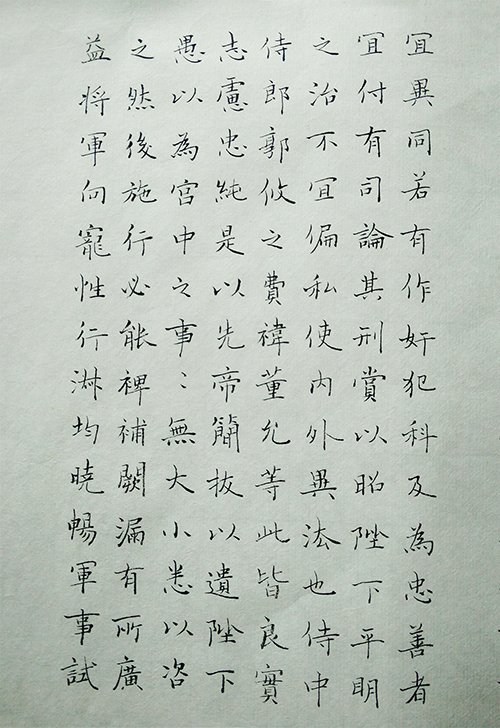 宜異同若有作奸犯科及為忠善者
宜付有司論其刑賞以昭陛下平明
之治不宜偏私使内外異法也侍中
侍郎郭攸之費禕董允等此皆良實
志慮忠純是以先帝簡拔以遺陛下
愚以為宮中之事〻無大小悉以咨
之然後施行必能裨補闕漏有所廣
益将軍向寵性行淋均曉暢軍事試